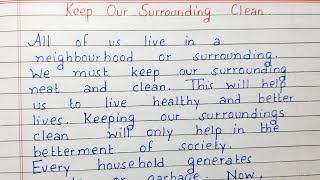 Keep Our Surrounding Clean
All of us live in a
neighbourhood or surrounding.
We must keep our surrounding
neat and clean. This will help
us to live healthy and better
lives. Keeping our surroundings
clean will only help in the
betterment of society.
Every household generates
or garbage. Now,